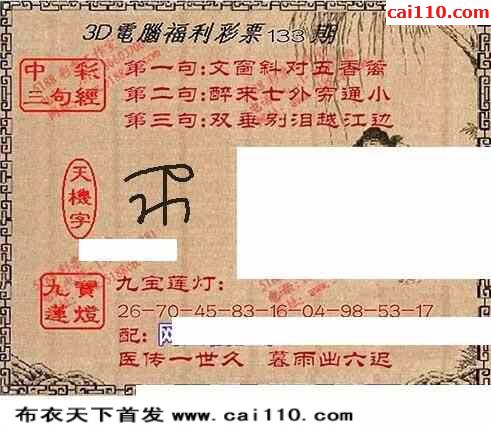 彩吧
cai110.com
3D電腦福利彩票133期
中彩
三句經
第一句:文窗斜对五香薷
第二句:醉来士外穷通小
第三句:双垂别泪越江边
天機字
九寶
蓮燈
九宝莲灯:
26-70-45-83-16-04-98-53-17
配:
医传一世久 暮雨出六迟
布衣天下首发 www.cai110.com